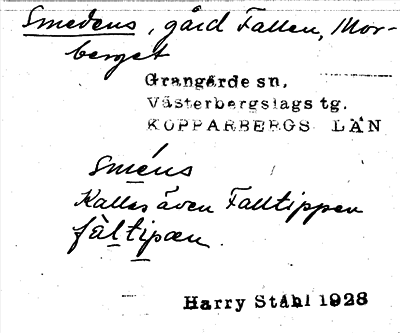 Smedens, gård Fallen, Mor-
berget
Grangärde sn,
Västerbergslags tg.
KOPPARBERGS LÄN
sméns
Kallas även Falltippen
fàltipæn
Harry Ståhl 1928